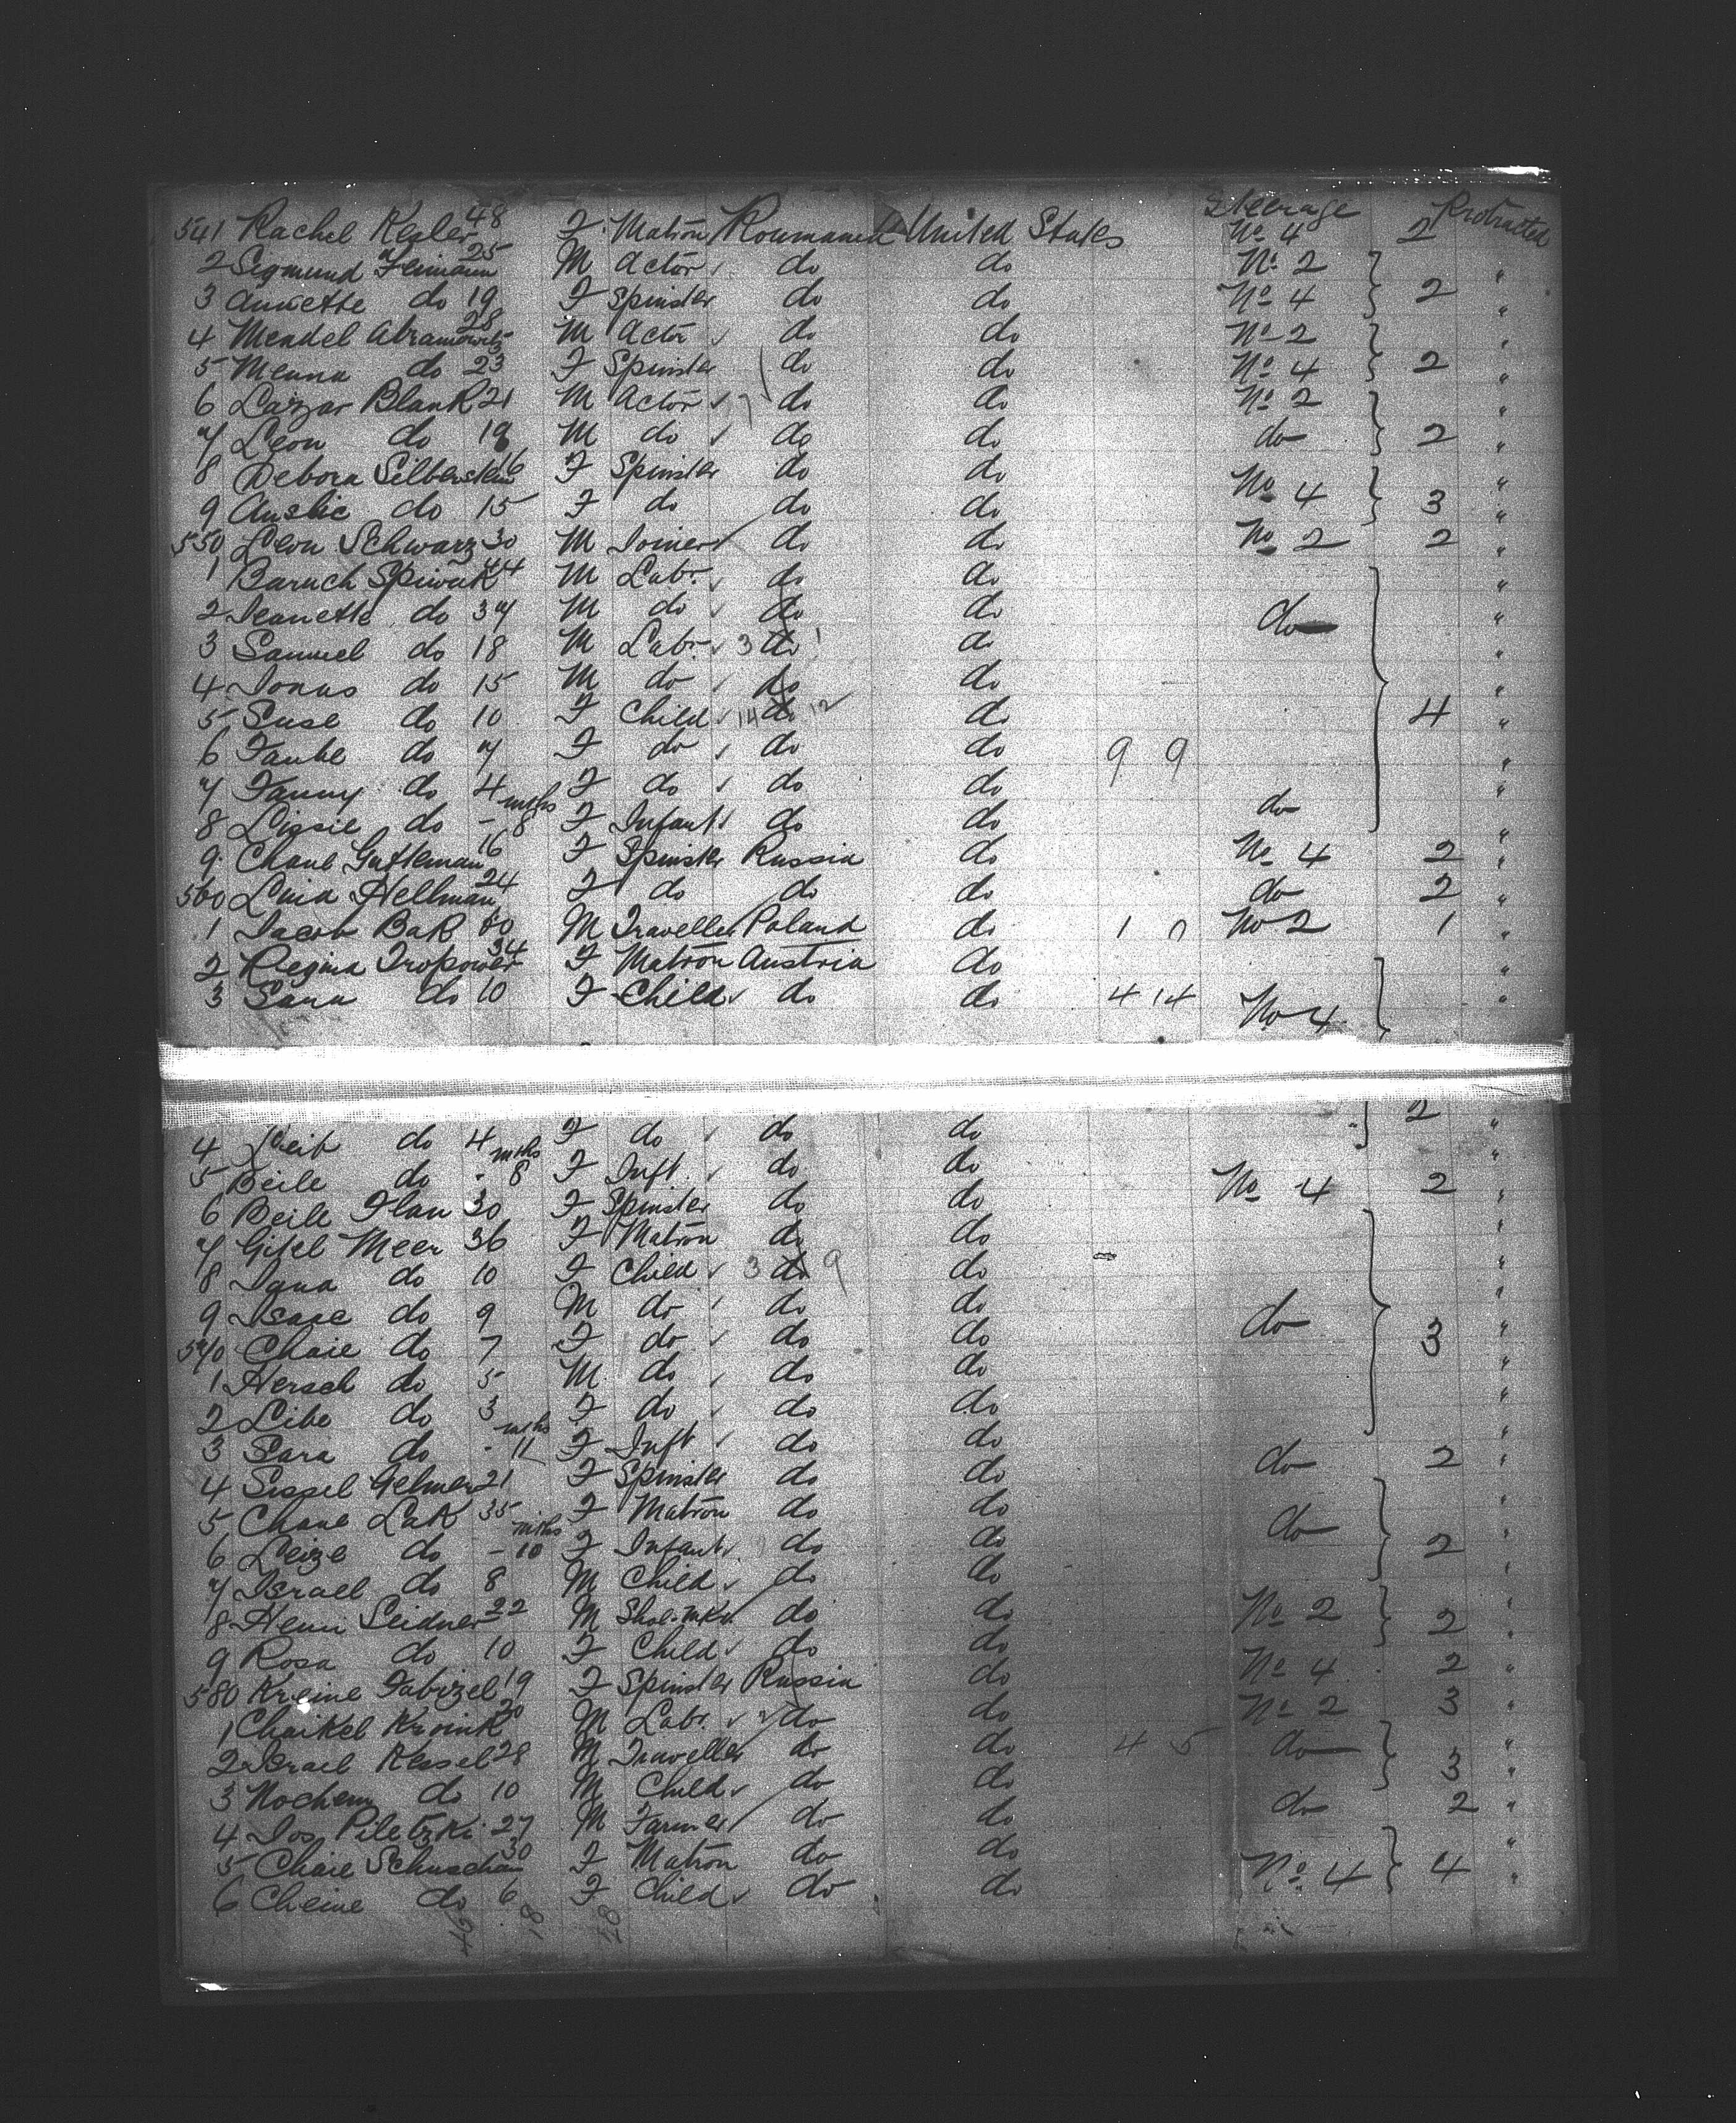 Steerage Protracted
541 Rachel Kesler 48 F Matron Roumania United States No 4 2
2 Segmund Feimann 25 M Actor do do No 2 "
3 Annette do 19 F Spinster do do No 4 2 "
4 Mendel Abramowitz 28 M Actor do do No 2 "
5 Menna do 23 F Spinster do do No 4 2 "
6 Lazar Blank 21 M Actor do do No 2 "
7 Leon do 19 M do do do do 2 "
8 Debora Silberstein 16 F Spinster do do No 4 "
9 do 15 F do do do 3 "
550 Leon Schwarz 30 M Joiner do do No 2 2 "
1 Baruch Spiwak 44 M Labr. do do "
2 Jeanette do 37 M do do do do "
3 Samuel do 18 M Labr. 3 do 1 do "
4 Jonas do 15 M do do do "
5 Suse do 10 F Child 14 do 12 do 4 "
6 Taube do 7 F do do do 9 9 "
7 Fanny do 4 F do do do "
8 Lissie do - mths 8 F Infant do do do "
9 Chane Gutteman 16 F Spinster Russia do No 4 2 "
560 Hellman 24 F do do do do 2 "
1 Jacob Bak M Traveller Poland do 1 0 No 2 1 "
2 Regina Tropower 34 F Matron Austria do "
3 Sana do 10 F Child do do 4 14 No 4 "
4 Leib do 4 F do do do 2 "
5 Beile do - mths 8 F Inft. do do "
6 Beile Flau 30 F Spinster do do No 4 2 "
7 Gitel Meer 36 F Matron do do "
8 do 10 F Child 3 do 9 do "
9 Isaac do 9 M do do do "
570 Chaie do 7 F do do do do 3 "
1 Hersch do 5 M do do do "
2 Libe do 3 F do do do "
3 Sara do - mths 11 F Inft do do "
4 Sissel Gelmer 21 F Spinster do do do 2 "
5 Chane Lak 35 F Matron do do do "
6 Leize do - mths 10 F Infant do do 2 "
7 Israel do 8 M Child do do "
8 Henri Seidner 22 M Shoe-mkr do do No 2 2 "
9 Rosa do 10 F Child do do "
580 Kreine Fabizel 19 F Spinster Russia do No 4 2 "
1 Chaikel Kroink 30 M Labr. do do No 2 3 "
2 Israel Kessel 28 M Traveller do do 4 5 do "
3 Nochem do 10 M Child do do 3 "
4 Jos Piletzki 27 M Farmer do do do 2 "
5 Chaie Schuschan 30 F Matron do do "
6 Cheine do 6 F Child do do No 4 4 "